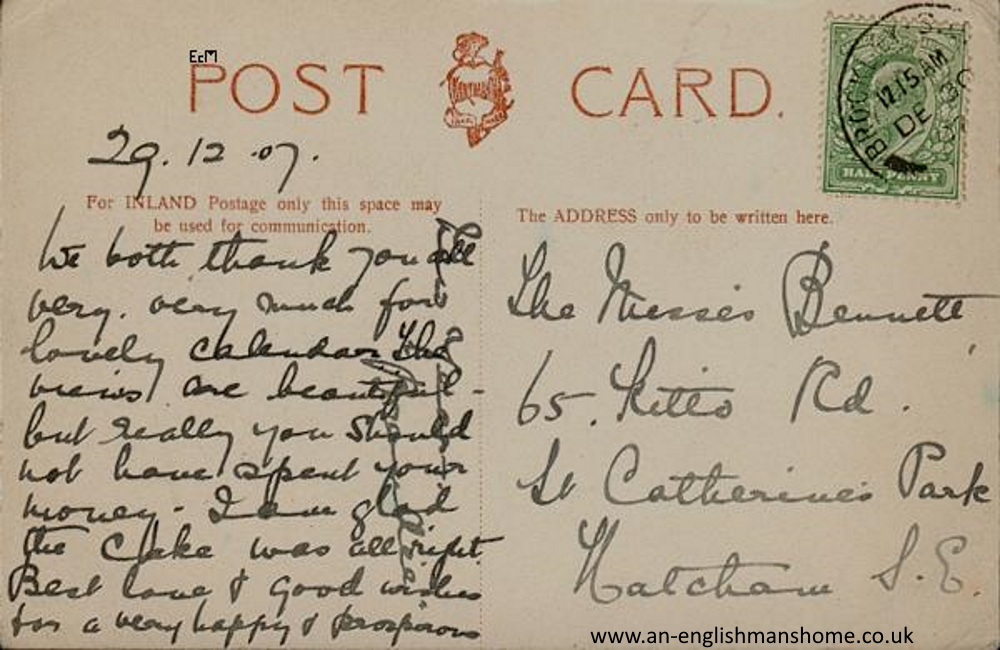 EcM
POST CARD.
BROCKLEY S.E.
12.15 AM
DE 30
HALFPENNY
29.12.07.
For INLAND Postage only this space may
be used for communication.
The ADDRESS only to be written here.
We both thank you all
very, very much for
lovely calendar The
views are beautiful -
but really you should
not have spent your
money - I am glad
the Cake was all right.
Best love & good wishes
for a very happy & prosperous
The Misses Bennett,
65. Kitto Rd.
St Catherine's Park
Hatcham S.E.
www.an-englishmanshome.co.uk